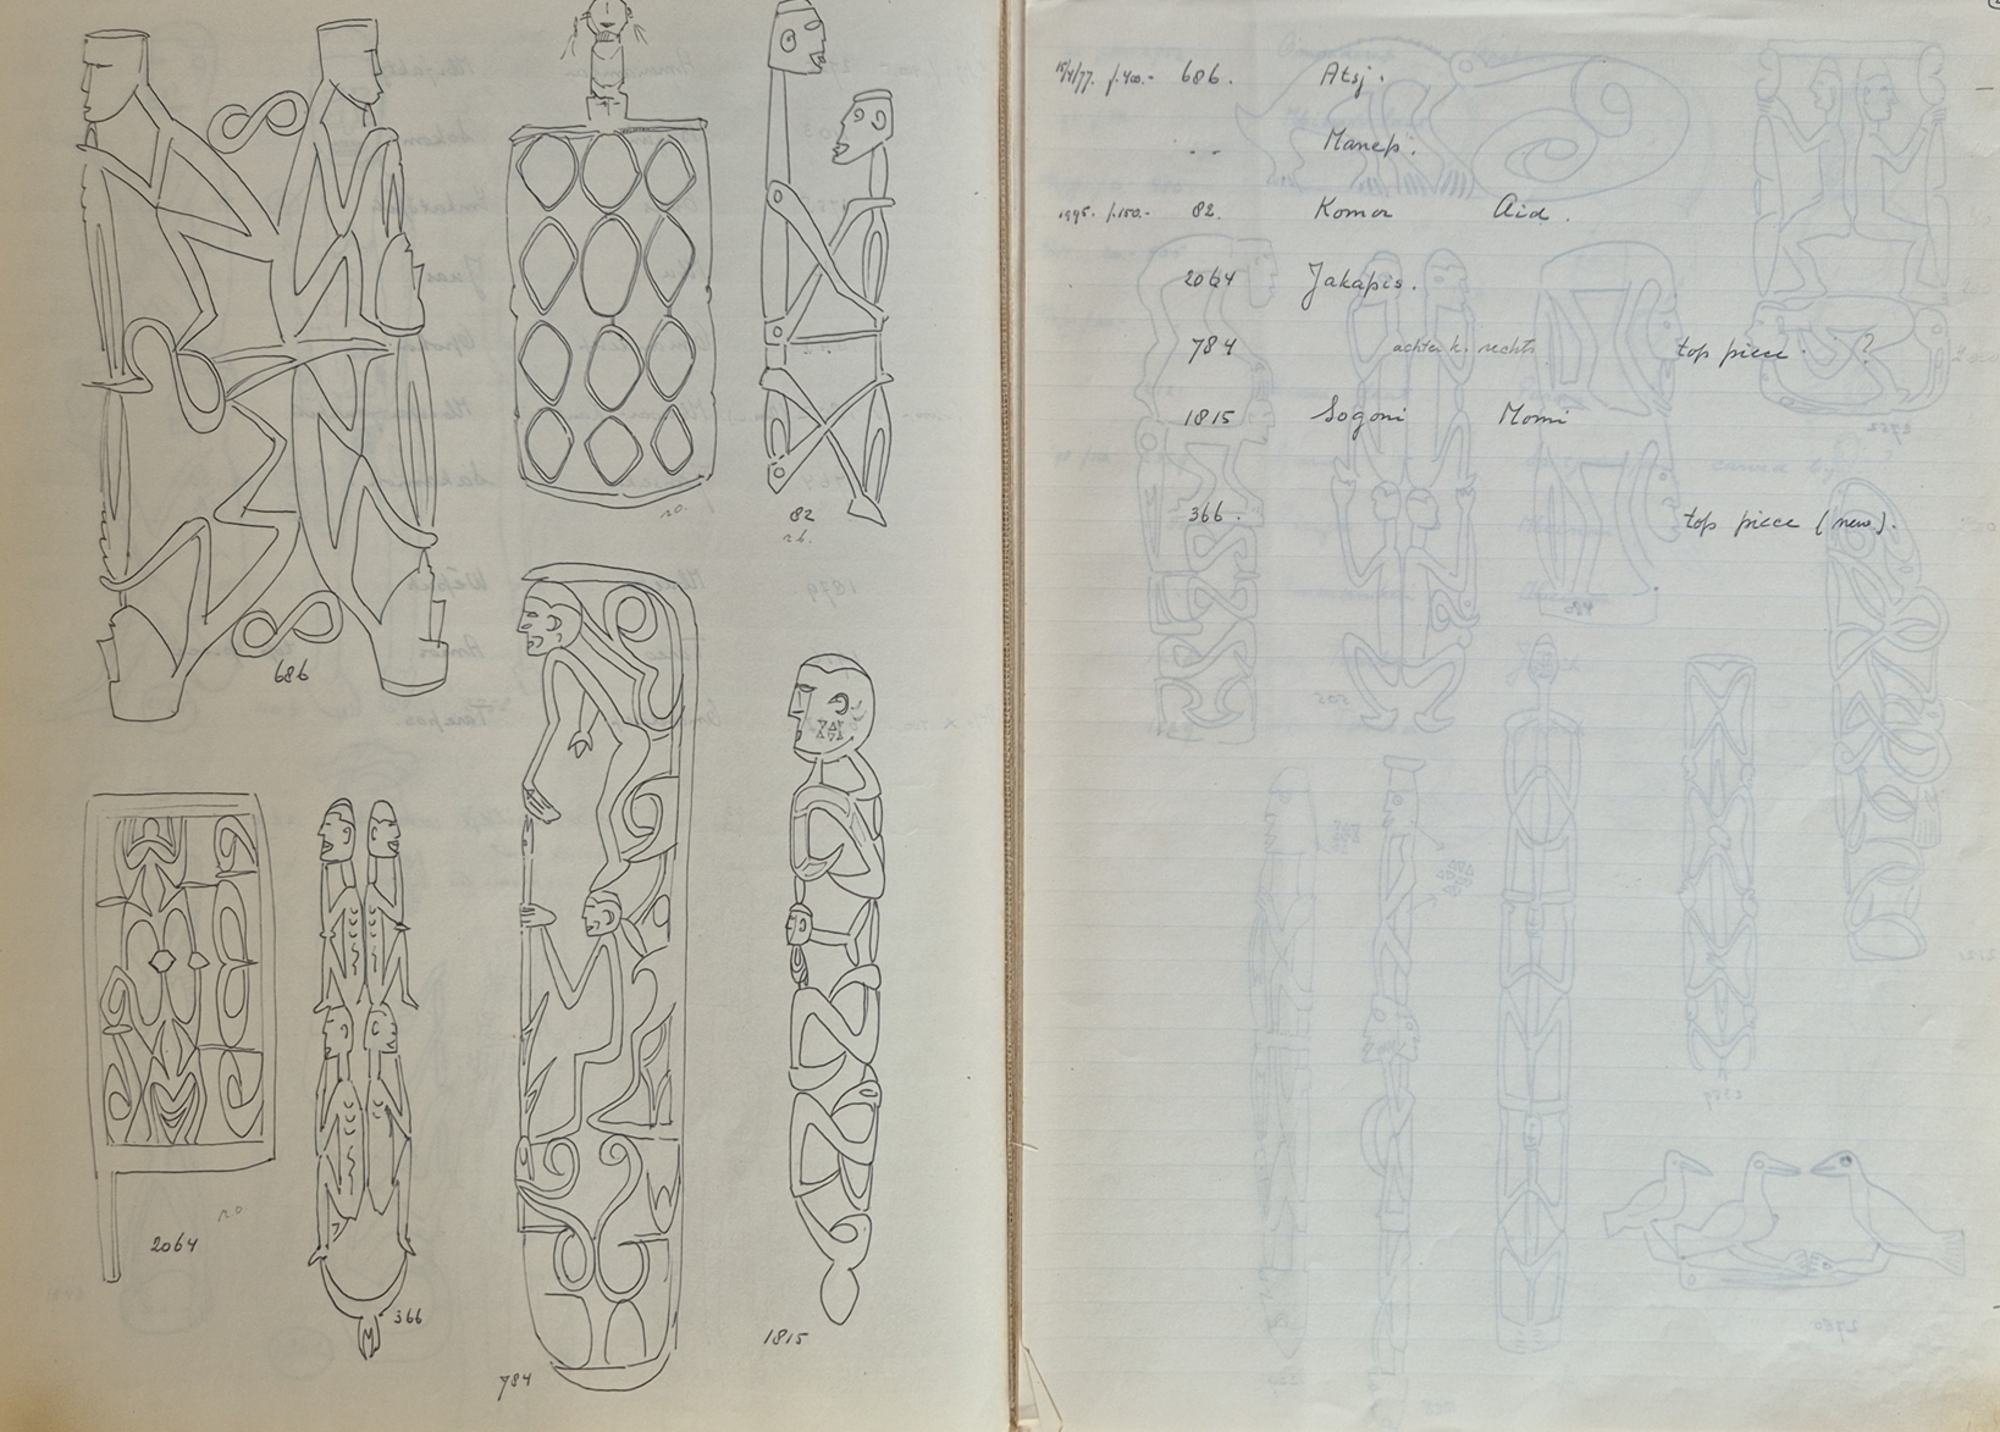 686
no.
82
2064
no
366
784
1815
15/4/77. f.400.- 686. Atsj.
- - Manep.
1995. f.150.- 82. Komor Aid.
2064 Jakapis.
784 achter k. rechts top piece ?
1815 Sogoni Momi
366. top piece (new).